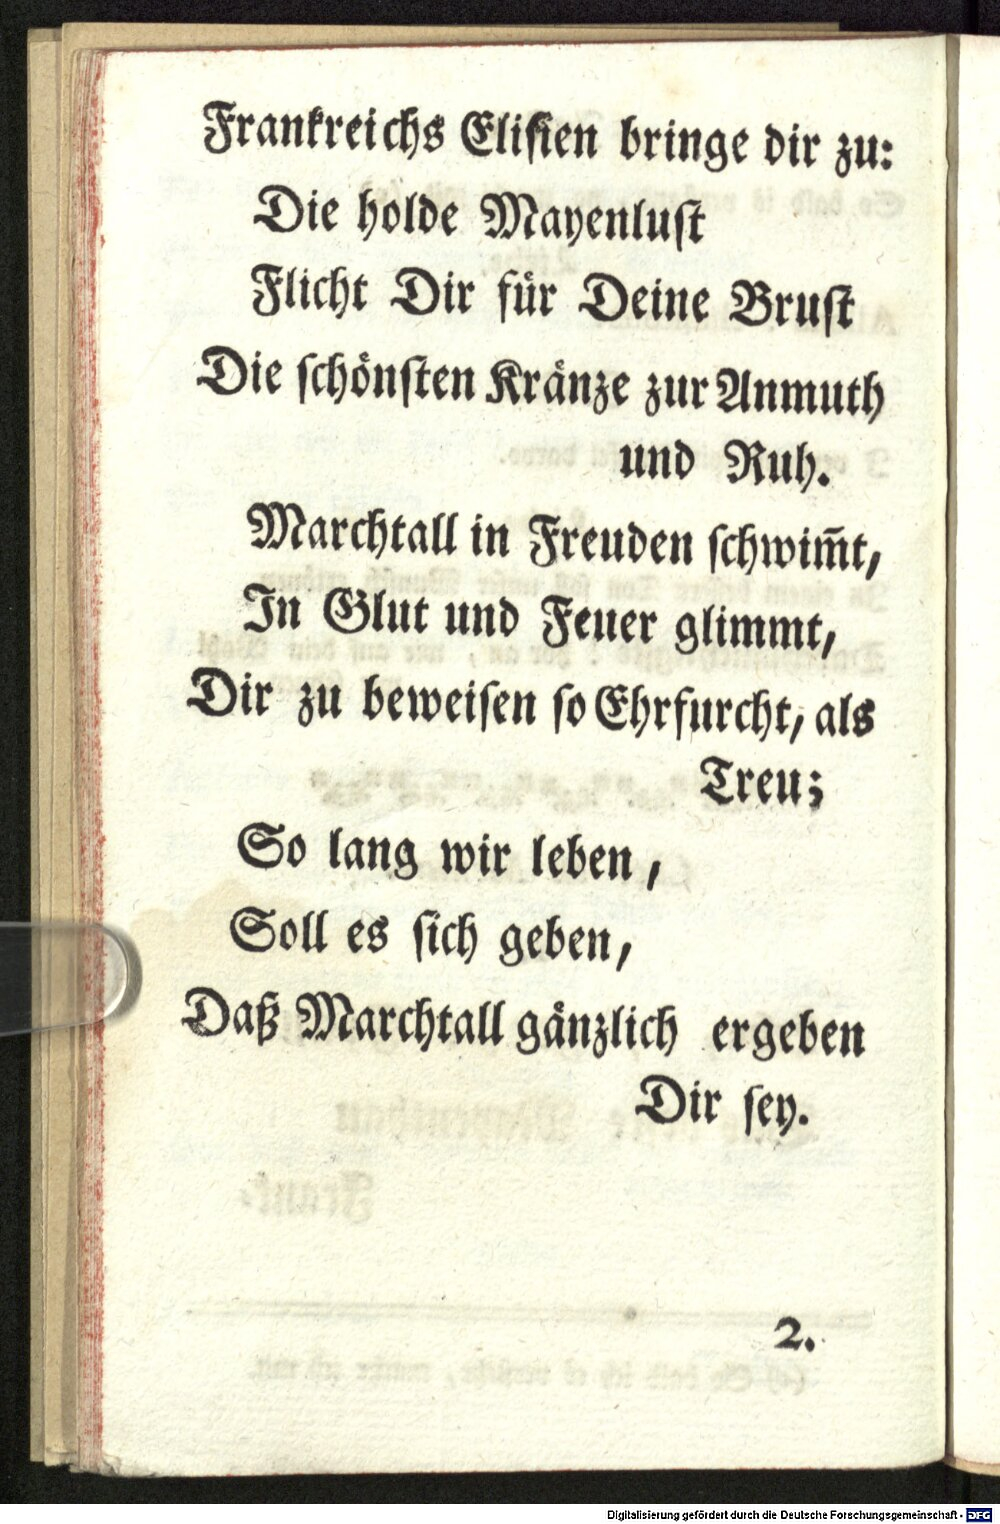 Frankreichs Elisien bringe dir zu:
Die holde Mayenlust
Flicht Dir für Deine Brust
Die schönsten Kränze zur Anmuth
und Ruh.
Marchtall in Freuden schwim̃t,
In Glut und Feuer glimmt,
Dir zu beweisen so Ehrfurcht, als
Treu;
So lang wir leben,
Soll es sich geben,
Daß Marchtall gänzlich ergeben
Dir sey.
2.
Digitalisierung gefördert durch die Deutsche Forschungsgemeinschaft - DFG